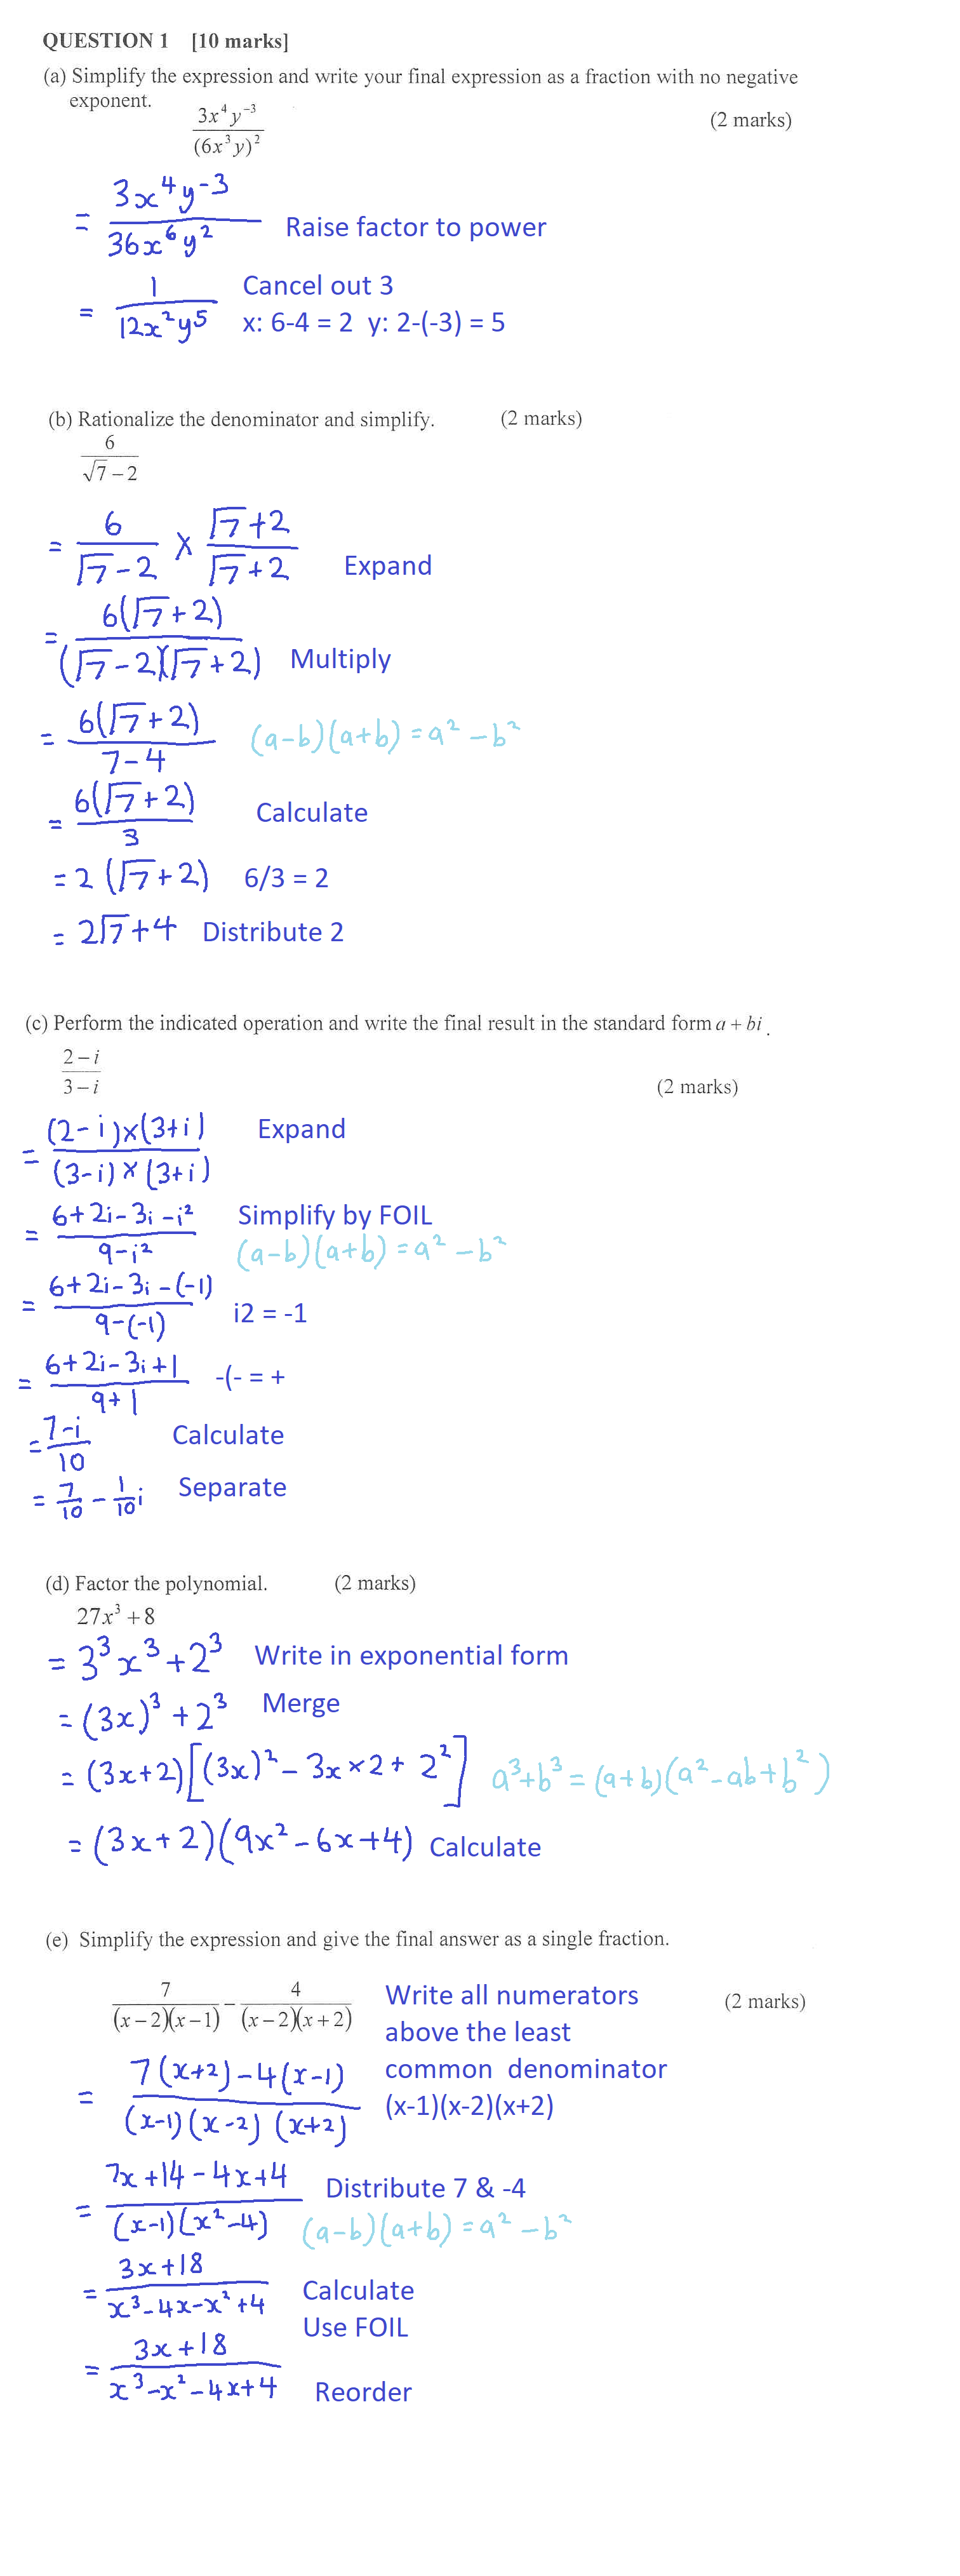 QUESTION 1 [10 marks]
(a) Simplify the expression and write your final expression as a fraction with no negative
exponent.
(2 marks)
3x⁴y⁻³
(6x³y)²
= 3x⁴y⁻³ / 36x⁶y² Raise factor to power
= 1 / 12x²y⁵ Cancel out 3
x: 6-4 = 2 y: 2-(-3) = 5
(b) Rationalize the denominator and simplify. (2 marks)
6
√7 − 2
= 6 / √7-2 × √7+2 / √7+2 Expand
= 6(√7+2) / (√7-2)(√7+2) Multiply
= 6(√7+2) / 7-4 (a-b)(a+b) = a² - b²
= 6(√7+2) / 3 Calculate
= 2(√7+2) 6/3 = 2
= 2√7+4 Distribute 2
(c) Perform the indicated operation and write the final result in the standard form a + bi .
2 − i
3 − i
(2 marks)
= (2-i)×(3+i) / (3-i)×(3+i) Expand
= 6+2i-3i-i² / 9-i² Simplify by FOIL
(a-b)(a+b) = a² - b²
= 6+2i-3i-(-1) / 9-(-1) i2 = -1
= 6+2i-3i+1 / 9+1 -(- = +
= 7-i / 10 Calculate
= 7/10 - 1/10 i Separate
(d) Factor the polynomial. (2 marks)
27x³ + 8
= 3³x³+2³ Write in exponential form
= (3x)³+2³ Merge
= (3x+2)[(3x)²-3x×2+2²] a³+b³=(a+b)(a²-ab+b²)
= (3x+2)(9x²-6x+4) Calculate
(e) Simplify the expression and give the final answer as a single fraction.
7 / (x−2)(x−1) − 4 / (x−2)(x+2)
(2 marks)
Write all numerators
above the least
common denominator
(x-1)(x-2)(x+2)
= 7(x+2)-4(x-1) / (x-1)(x-2)(x+2)
= 7x+14-4x+4 / (x-1)(x²-4) Distribute 7 & -4
(a-b)(a+b) = a² - b²
= 3x+18 / x³-4x-x²+4 Calculate
Use FOIL
= 3x+18 / x³-x²-4x+4 Reorder